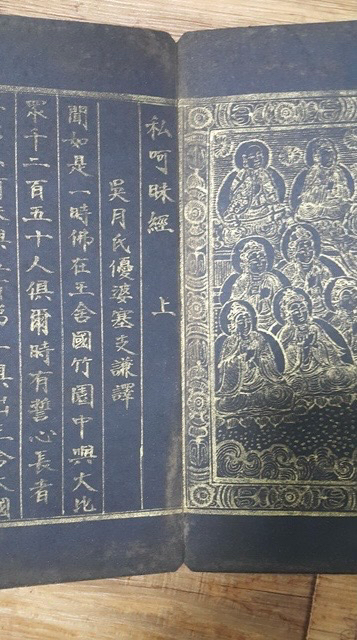 私呵昧經 上
吳月氏優婆塞支謙譯
聞如是一時佛在王舍國竹園中與大比
眾千二百五十人俱爾時有誓心長者